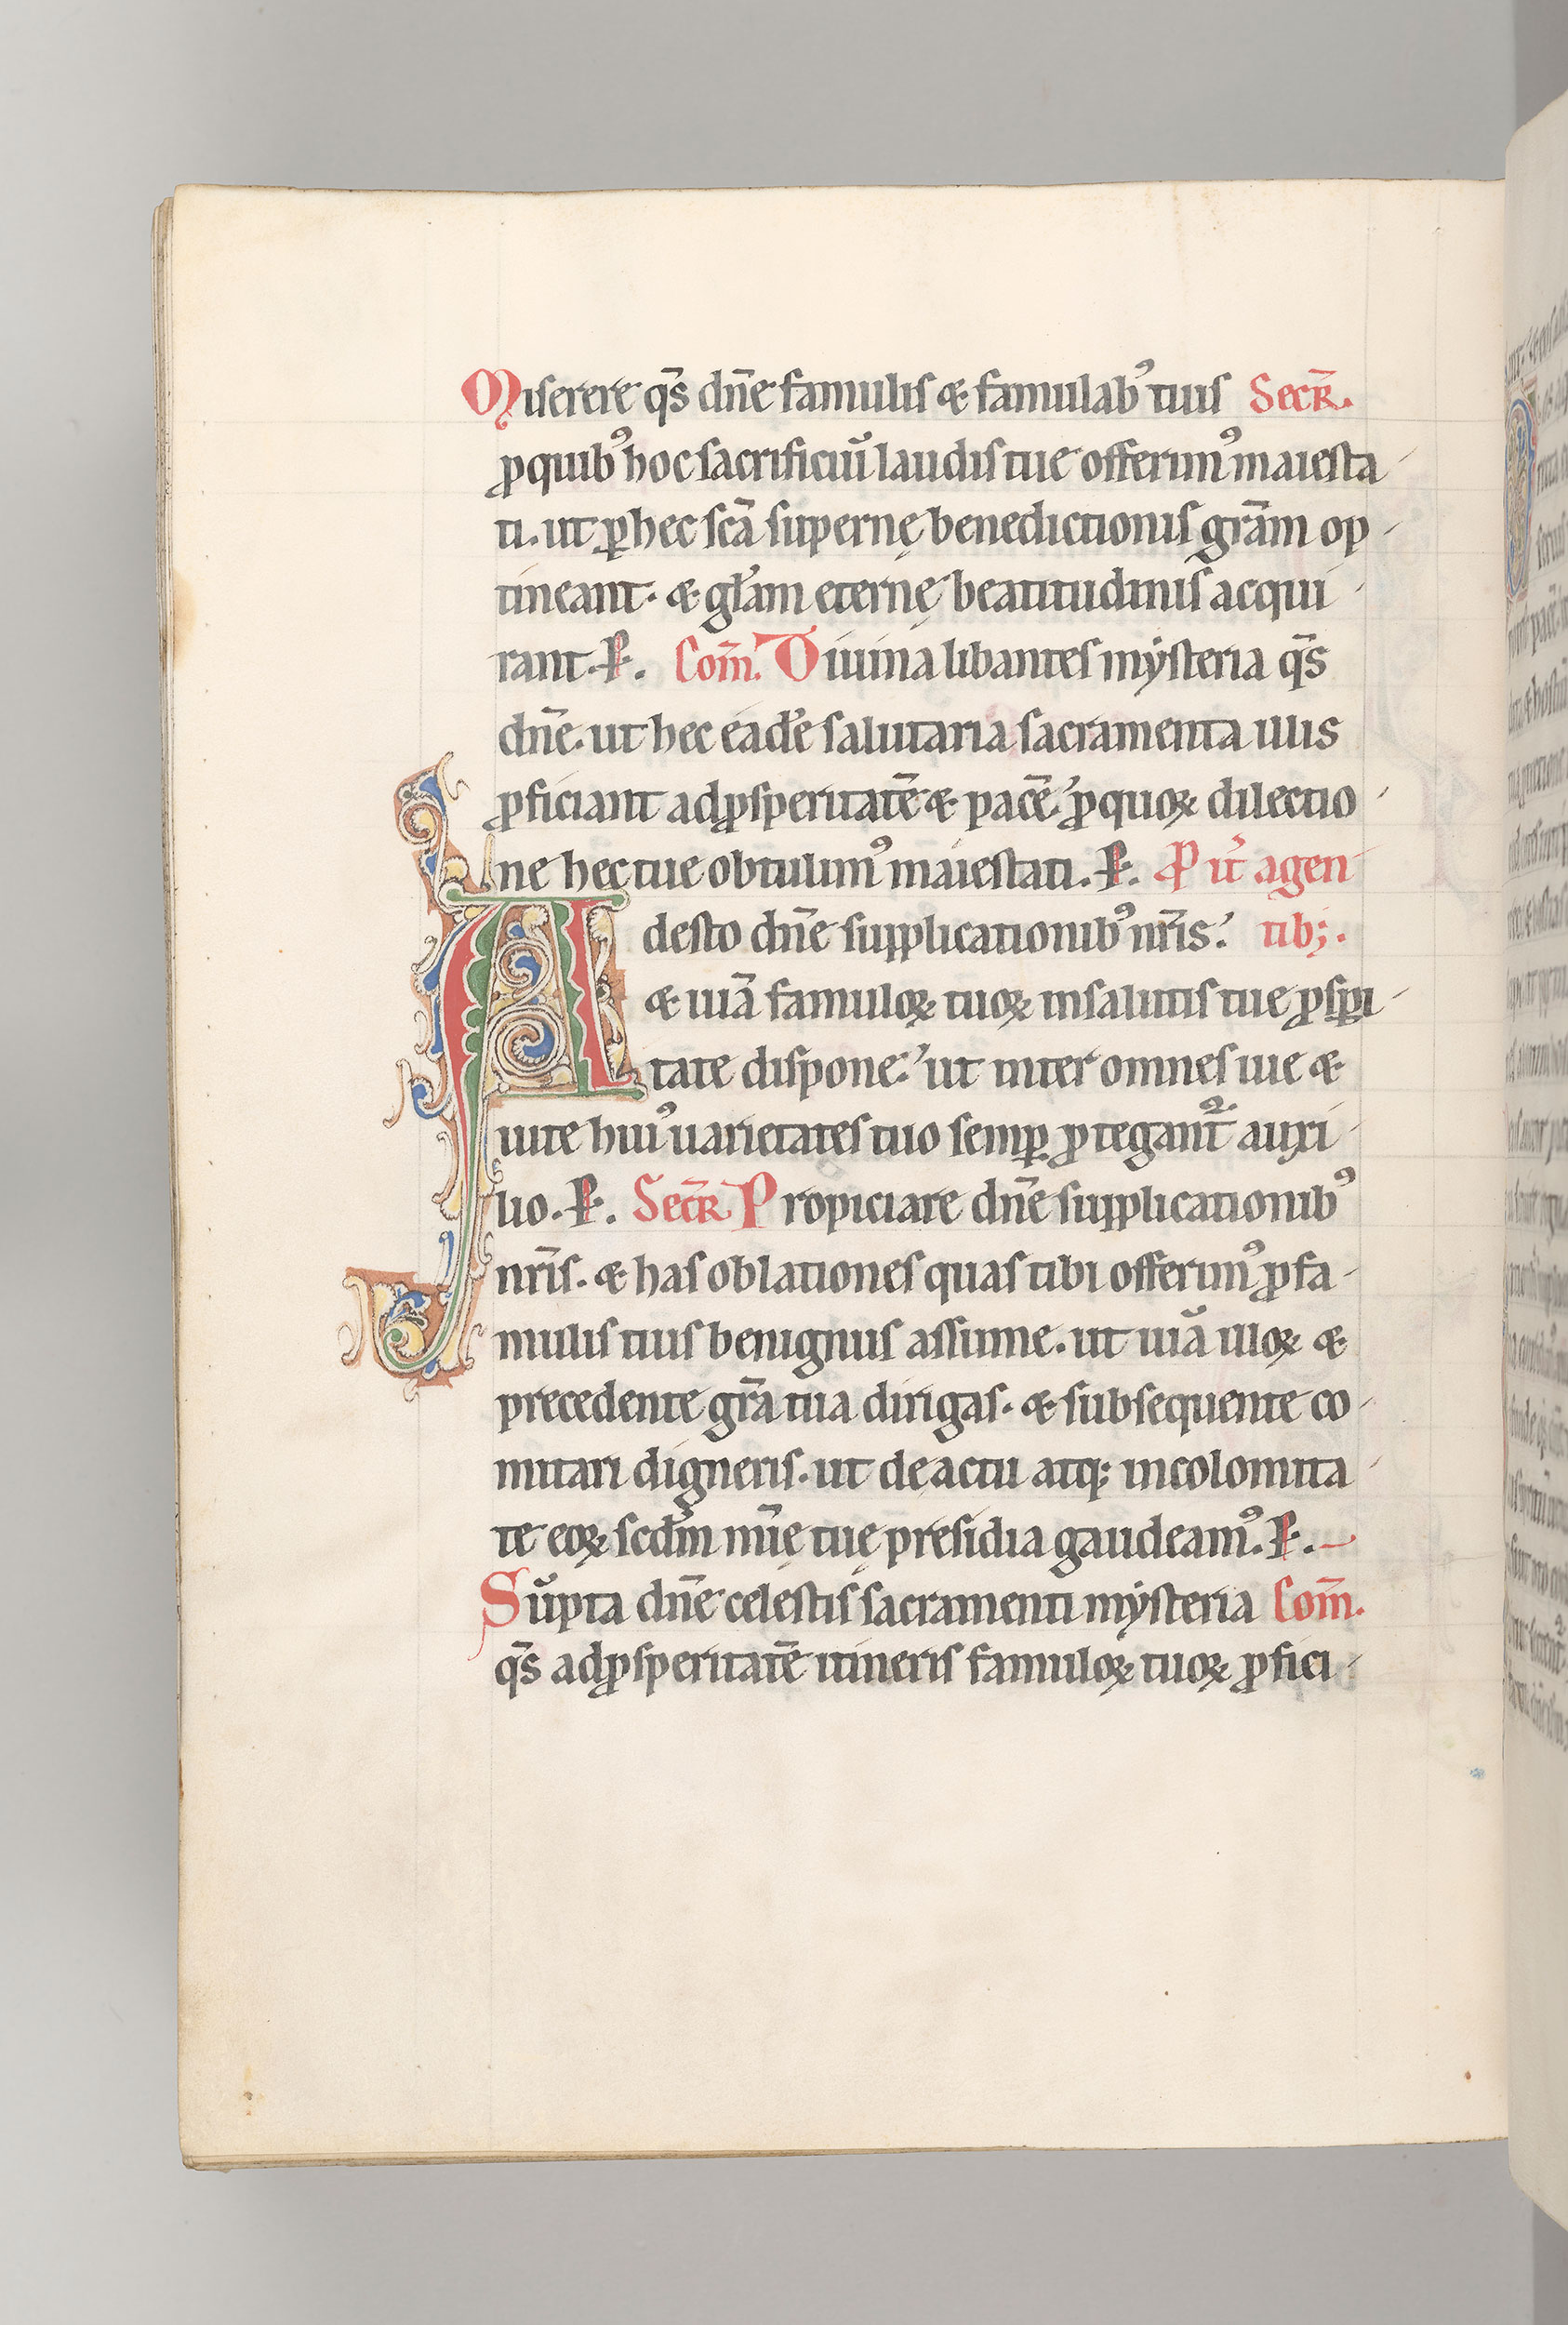 Miserere q̄s dn̄e famulis & famulab᾽ tuis Secr̄.
ꝓ quib᾽ hoc sacrificiū laudis tue offerim᾽ maiesta-
ti. ut ꝑ hec sc̄a supernę benedictionis gr̄am op-
tineant. & gl̄am eternę beatitudinis acqui-
rant. P. Com̄. Diuina libantes mẏsteria q̄s
dn̄e. ut hec eadē salutaria sacramenta illis
ꝓficiant ad ꝓsperitatē & pacē. ꝓ quoꝝ dilectio-
ne hec tue obtulim᾽ maiestati. P. Pro it̄ agen-
Adesto dn̄e supplicationib᾽ nr̄is. tib;.
& uiā famuloꝝ tuoꝝ in salutis tue ꝓspi-
tate dispone. ut inter omnes uie &
uite hui᾽ uarietates tuo semꝑ ꝓtegant᷑ auxi-
lio. P. Secr̄ Propiciare dn̄e supplicationib᾽
nr̄is. & has oblationes quas tibi offerim᾽ ꝓ fa-
mulis tuis benignus assume. ut uiā illoꝝ &
precedente gr̄a tua dirigas. & subsequente co-
mitari digneris. ut de actu atq; incolomita-
te eoꝝ scdm̄ mīę tuę presidia gaudeam᾽. P.
Sūpta dn̄e celestis sacramenti mẏsteria Com̄.
q̄s ad ꝓsperitatē itineris famuloꝝ tuoꝝ ꝓfici-